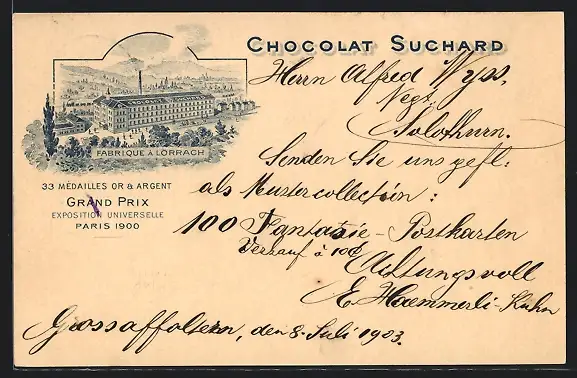 CHOCOLAT SUCHARD
FABRIQUE À LÖRRACH
33 MÉDAILLES OR & ARGENT
GRAND PRIX
EXPOSITION UNIVERSELLE
PARIS 1900
Herrn Alfred Wyss,
Negt.
Solothurn.
Senden Sie uns gefl:
als Mustercollection:
100 Fantasie-Postkarten
Verkauf à 10c
Achtungsvoll
E. Haemmerli-Kuhn
Grossaffoltern, den 8. Juli 1903.